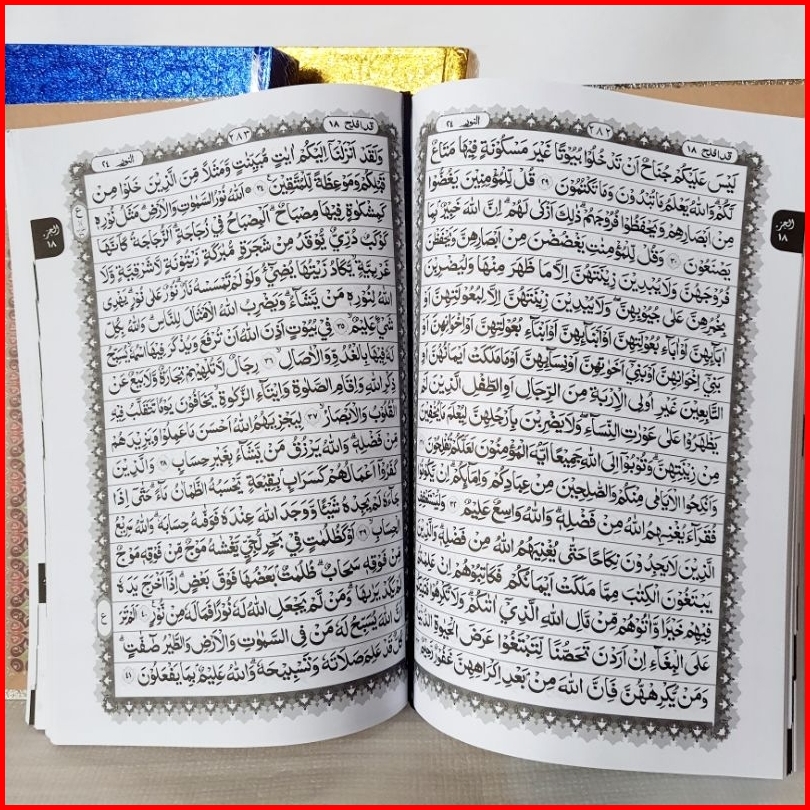 قد افلح ١٨
٢٨٢
النور ٢٤
الجزء
١٨
لَيْسَ عَلَيْكُمْ جُنَاحٌ اَنْ تَدْخُلُوْا بُيُوْتًا غَيْرَ مَسْكُوْنَةٍ فِيْهَا مَتَاعٌ
لَّكُمْ وَاللّٰهُ يَعْلَمُ مَا تُبْدُوْنَ وَمَا تَكْتُمُوْنَ ٢٩ قُلْ لِّلْمُؤْمِنِيْنَ يَغُضُّوْا
مِنْ اَبْصَارِهِمْ وَيَحْفَظُوْا فُرُوْجَهُمْ ذٰلِكَ اَزْكٰى لَهُمْ اِنَّ اللّٰهَ خَبِيْرٌ بِمَا
يَصْنَعُوْنَ ٣٠ وَقُلْ لِّلْمُؤْمِنٰتِ يَغْضُضْنَ مِنْ اَبْصَارِهِنَّ وَيَحْفَظْنَ
فُرُوْجَهُنَّ وَلَا يُبْدِيْنَ زِيْنَتَهُنَّ اِلَّا مَا ظَهَرَ مِنْهَا وَلْيَضْرِبْنَ
بِخُمُرِهِنَّ عَلٰى جُيُوْبِهِنَّ وَلَا يُبْدِيْنَ زِيْنَتَهُنَّ اِلَّا لِبُعُوْلَتِهِنَّ اَوْ
اٰبَآئِهِنَّ اَوْ اٰبَآءِ بُعُوْلَتِهِنَّ اَوْ اَبْنَآئِهِنَّ اَوْ اَبْنَآءِ بُعُوْلَتِهِنَّ اَوْ اِخْوَانِهِنَّ اَوْ
بَنِيْٓ اِخْوَانِهِنَّ اَوْ بَنِيْٓ اَخَوٰتِهِنَّ اَوْ نِسَآئِهِنَّ اَوْ مَا مَلَكَتْ اَيْمَانُهُنَّ اَوِ
التَّابِعِيْنَ غَيْرِ اُولِى الْاِرْبَةِ مِنَ الرِّجَالِ اَوِ الطِّفْلِ الَّذِيْنَ لَمْ
يَظْهَرُوْا عَلٰى عَوْرٰتِ النِّسَآءِ وَلَا يَضْرِبْنَ بِاَرْجُلِهِنَّ لِيُعْلَمَ مَا يُخْفِيْنَ
مِنْ زِيْنَتِهِنَّ وَتُوْبُوْٓا اِلَى اللّٰهِ جَمِيْعًا اَيُّهَ الْمُؤْمِنُوْنَ لَعَلَّكُمْ تُفْلِحُوْنَ ٣١
وَاَنْكِحُوا الْاَيَامٰى مِنْكُمْ وَالصّٰلِحِيْنَ مِنْ عِبَادِكُمْ وَاِمَآئِكُمْ اِنْ يَّكُوْنُوْا
فُقَرَآءَ يُغْنِهِمُ اللّٰهُ مِنْ فَضْلِهٖ وَاللّٰهُ وَاسِعٌ عَلِيْمٌ ٣٢ وَلْيَسْتَعْفِفِ
الَّذِيْنَ لَا يَجِدُوْنَ نِكَاحًا حَتّٰى يُغْنِيَهُمُ اللّٰهُ مِنْ فَضْلِهٖ وَالَّذِيْنَ
يَبْتَغُوْنَ الْكِتٰبَ مِمَّا مَلَكَتْ اَيْمَانُكُمْ فَكَاتِبُوْهُمْ اِنْ عَلِمْتُمْ
فِيْهِمْ خَيْرًا وَّاٰتُوْهُمْ مِّنْ مَّالِ اللّٰهِ الَّذِيْٓ اٰتٰىكُمْ وَلَا تُكْرِهُوْا فَتَيٰتِكُمْ
عَلَى الْبِغَآءِ اِنْ اَرَدْنَ تَحَصُّنًا لِّتَبْتَغُوْا عَرَضَ الْحَيٰوةِ الدُّنْيَا
وَمَنْ يُّكْرِهْهُّنَّ فَاِنَّ اللّٰهَ مِنْ بَعْدِ اِكْرَاهِهِنَّ غَفُوْرٌ رَّحِيْمٌ
قد افلح ١٨
٢٨٣
النور ٢٤
الجزء
١٨
وَلَقَدْ اَنْزَلْنَآ اِلَيْكُمْ اٰيٰتٍ مُّبَيِّنٰتٍ وَّمَثَلًا مِّنَ الَّذِيْنَ خَلَوْا مِنْ
قَبْلِكُمْ وَمَوْعِظَةً لِّلْمُتَّقِيْنَ ٣٤ اَللّٰهُ نُوْرُ السَّمٰوٰتِ وَالْاَرْضِ مَثَلُ نُوْرِهٖ
كَمِشْكٰوةٍ فِيْهَا مِصْبَاحٌ اَلْمِصْبَاحُ فِيْ زُجَاجَةٍ اَلزُّجَاجَةُ كَاَنَّهَا
كَوْكَبٌ دُرِّيٌّ يُّوْقَدُ مِنْ شَجَرَةٍ مُّبٰرَكَةٍ زَيْتُوْنَةٍ لَّا شَرْقِيَّةٍ وَّلَا
غَرْبِيَّةٍ يَّكَادُ زَيْتُهَا يُضِيْٓءُ وَلَوْ لَمْ تَمْسَسْهُ نَارٌ نُوْرٌ عَلٰى نُوْرٍ يَهْدِى
اللّٰهُ لِنُوْرِهٖ مَنْ يَّشَآءُ وَيَضْرِبُ اللّٰهُ الْاَمْثَالَ لِلنَّاسِ وَاللّٰهُ بِكُلِّ
شَيْءٍ عَلِيْمٌ ٣٥ فِيْ بُيُوْتٍ اَذِنَ اللّٰهُ اَنْ تُرْفَعَ وَيُذْكَرَ فِيْهَا اسْمُهٗ يُسَبِّحُ
لَهٗ فِيْهَا بِالْغُدُوِّ وَالْاٰصَالِ ٣٦ رِجَالٌ لَّا تُلْهِيْهِمْ تِجَارَةٌ وَّلَا بَيْعٌ عَنْ
ذِكْرِ اللّٰهِ وَاِقَامِ الصَّلٰوةِ وَاِيْتَآءِ الزَّكٰوةِ يَخَافُوْنَ يَوْمًا تَتَقَلَّبُ فِيْهِ
الْقُلُوْبُ وَالْاَبْصَارُ ٣٧ لِيَجْزِيَهُمُ اللّٰهُ اَحْسَنَ مَا عَمِلُوْا وَيَزِيْدَهُمْ
مِّنْ فَضْلِهٖ وَاللّٰهُ يَرْزُقُ مَنْ يَّشَآءُ بِغَيْرِ حِسَابٍ ٣٨ وَالَّذِيْنَ
كَفَرُوْٓا اَعْمَالُهُمْ كَسَرَابٍۢ بِقِيْعَةٍ يَّحْسَبُهُ الظَّمْاٰنُ مَآءً حَتّٰىٓ اِذَا
جَآءَهٗ لَمْ يَجِدْهُ شَيْـًٔا وَّوَجَدَ اللّٰهَ عِنْدَهٗ فَوَفّٰىهُ حِسَابَهٗ وَاللّٰهُ سَرِيْعُ
الْحِسَابِ ٣٩ اَوْ كَظُلُمٰتٍ فِيْ بَحْرٍ لُّجِّيٍّ يَّغْشٰىهُ مَوْجٌ مِّنْ فَوْقِهٖ مَوْجٌ
مِّنْ فَوْقِهٖ سَحَابٌ ظُلُمٰتٌۢ بَعْضُهَا فَوْقَ بَعْضٍ اِذَآ اَخْرَجَ يَدَهٗ
لَمْ يَكَدْ يَرٰىهَا وَمَنْ لَّمْ يَجْعَلِ اللّٰهُ لَهٗ نُوْرًا فَمَا لَهٗ مِنْ نُّوْرٍ ٤٠ اَلَمْ تَرَ
اَنَّ اللّٰهَ يُسَبِّحُ لَهٗ مَنْ فِى السَّمٰوٰتِ وَالْاَرْضِ وَالطَّيْرُ صٰٓفّٰتٍ
كُلٌّ قَدْ عَلِمَ صَلَاتَهٗ وَتَسْبِيْحَهٗ وَاللّٰهُ عَلِيْمٌۢ بِمَا يَفْعَلُوْنَ ٤١